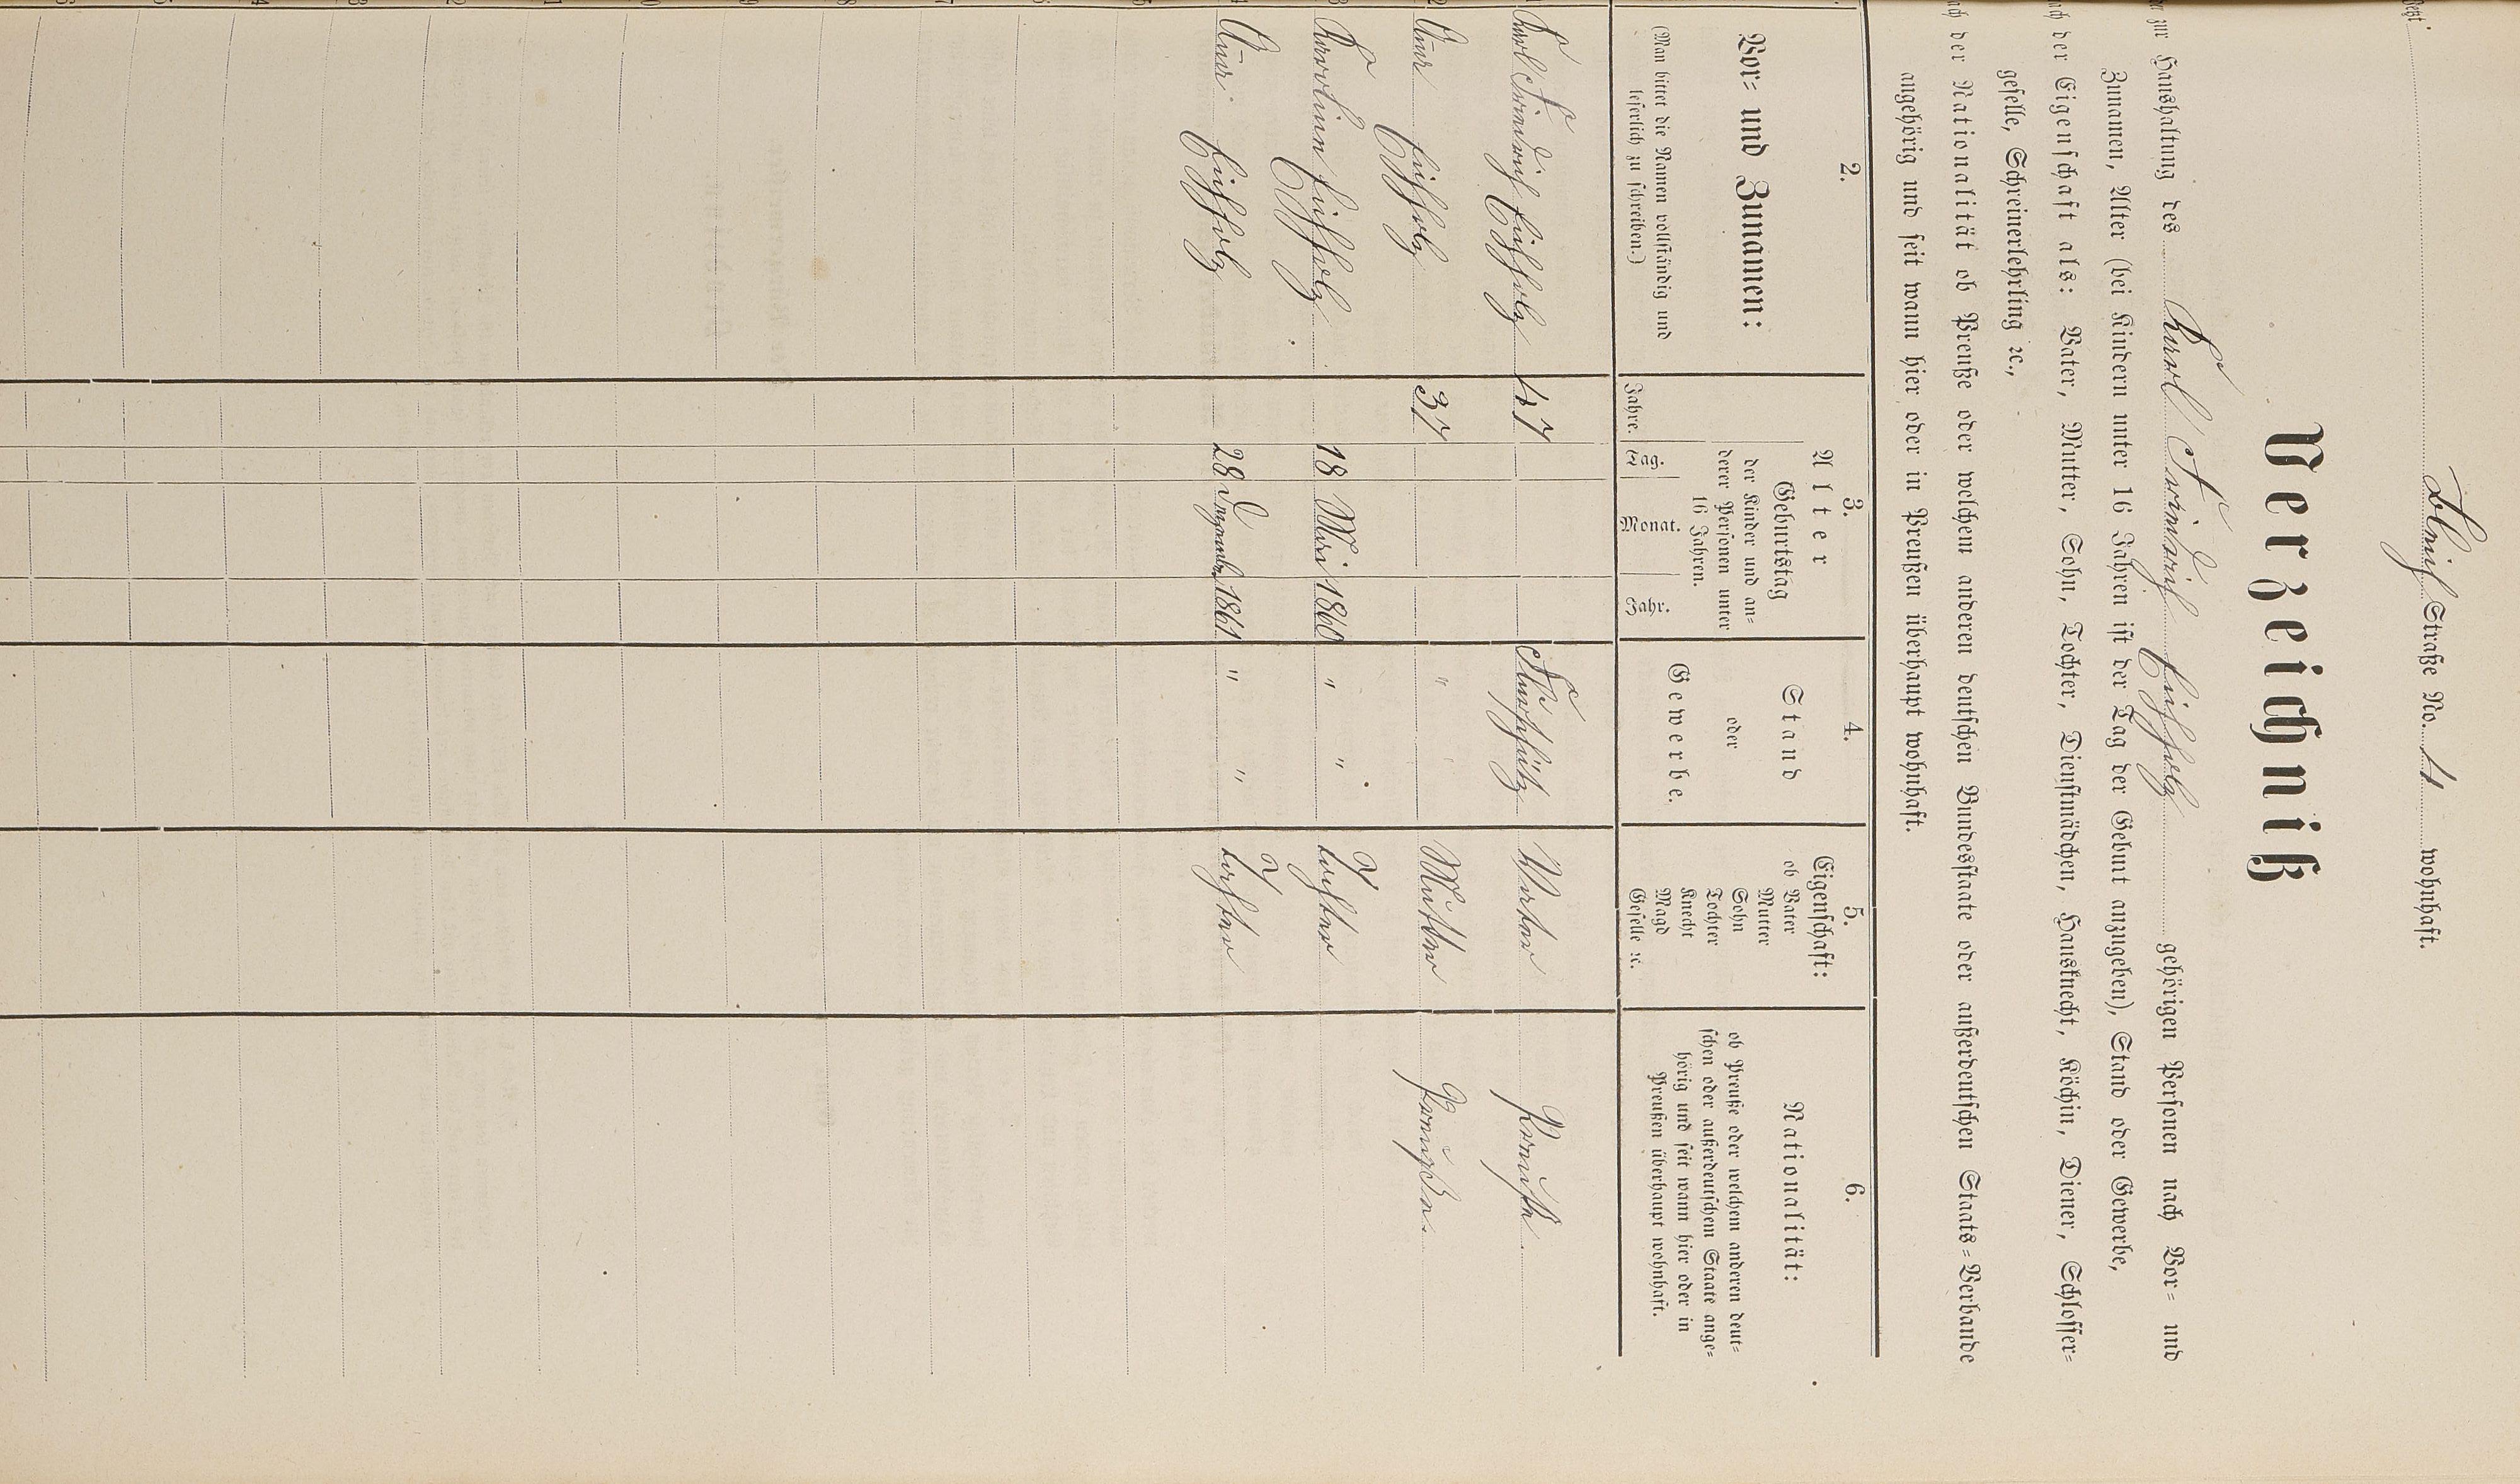 Jetzt Straße No. 4 wohnhaft.
Verzeichniß
der zur Haushaltung des Karl Friedrich Eichholz gehörigen Personen nach Vor= und
Zunamen, Alter (bei Kindern unter 16 Jahren ist der Tag der Geburt anzugeben), Stand oder Gewerbe,
nach der Eigenschaft als: Vater, Mutter, Sohn, Tochter, Dienstmädchen, Hausknecht, Köchin, Diener, Schlosser=
geselle, Schreinerlehrling ꝛc.,
nach der Nationalität ob Preuße oder welchem anderen deutschen Bundesstaate oder außerdeutschen Staats=Verbande
angehörig und seit wann hier oder in Preußen überhaupt wohnhaft.
2. 3. 4. 5. 6.
Vor= und Zunamen:
(Man bittet die Namen vollständig und
leserlich zu schreiben.)
Alter
Geburtstag
der Kinder und an=
derer Personen unter
16 Jahren.
Jahre. Tag. Monat. Jahr.
Stand
oder
Gewerbe.
Eigenschaft:
ob Vater
Mutter
Sohn
Tochter
Knecht
Magd
Geselle ꝛc.
Nationalität:
ob Preuße oder welchem anderen deut=
schen oder außerdeutschem Staate ange=
hörig und seit wann hier oder in
Preußen überhaupt wohnhaft.
1 Karl Friedrich Eichholz 47 Flurschütz Vater Preuße
2 Eichholz 37 " Mutter Preußen.
3 Karolina Eichholz 18 Mai 1860 " " Tochter
4 Eichholz 28 Dezember 1861 " " Tochter
5
6
7
8
9
10
11
12
13
14
15
16